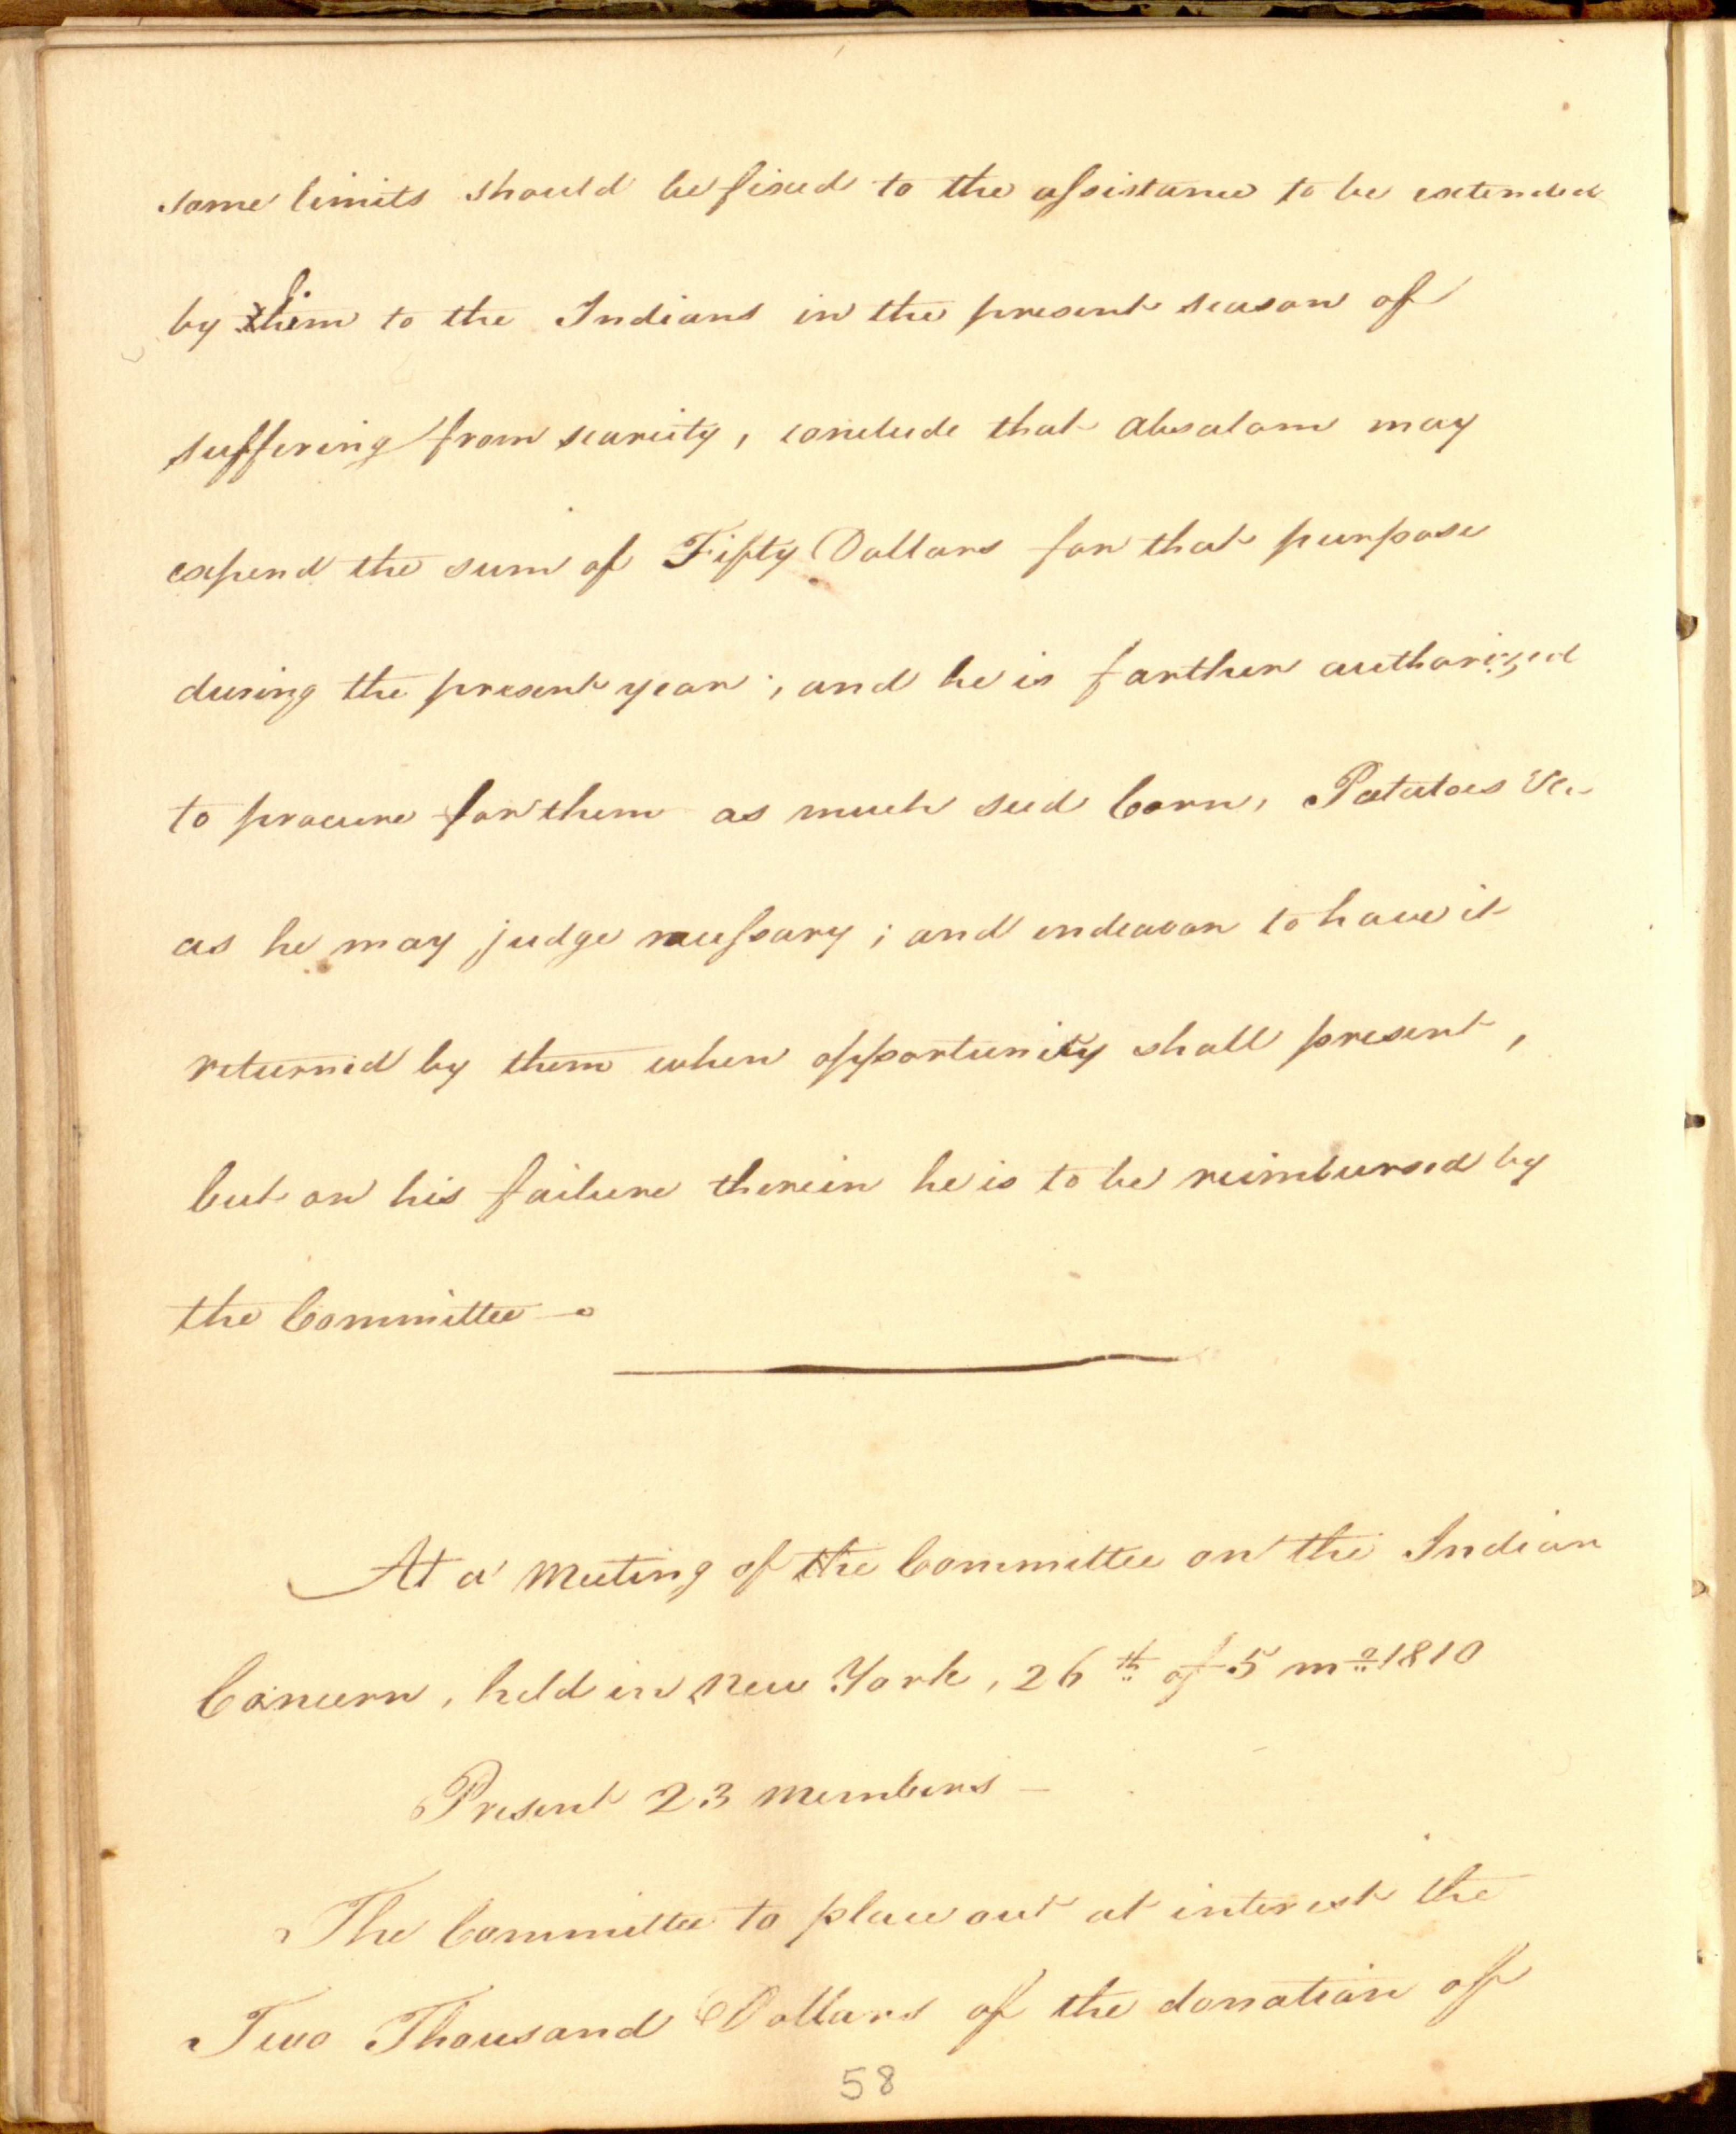 some limits should be fixed to the assistance to be extended
by him to the Indians in the present season of
suffering from scarcity, conclude that Absalom may
expend the sum of Fifty Dollars for that purpose
during the present year; and he is farther authorized
to procure for them as much seed Corn, Potatoes &c.
as he may judge necessary; and endeavor to have it
returned by them when opportunity shall present,
but on his failure therein he is to be reimbursed by
the Committee —
At a Meeting of the Committee on the Indian
Concern, held in New York, 26th of 5 mo. 1810
Present 23 Members —
The Committee to place out at interest the
Two Thousand Dollars of the donation of
58